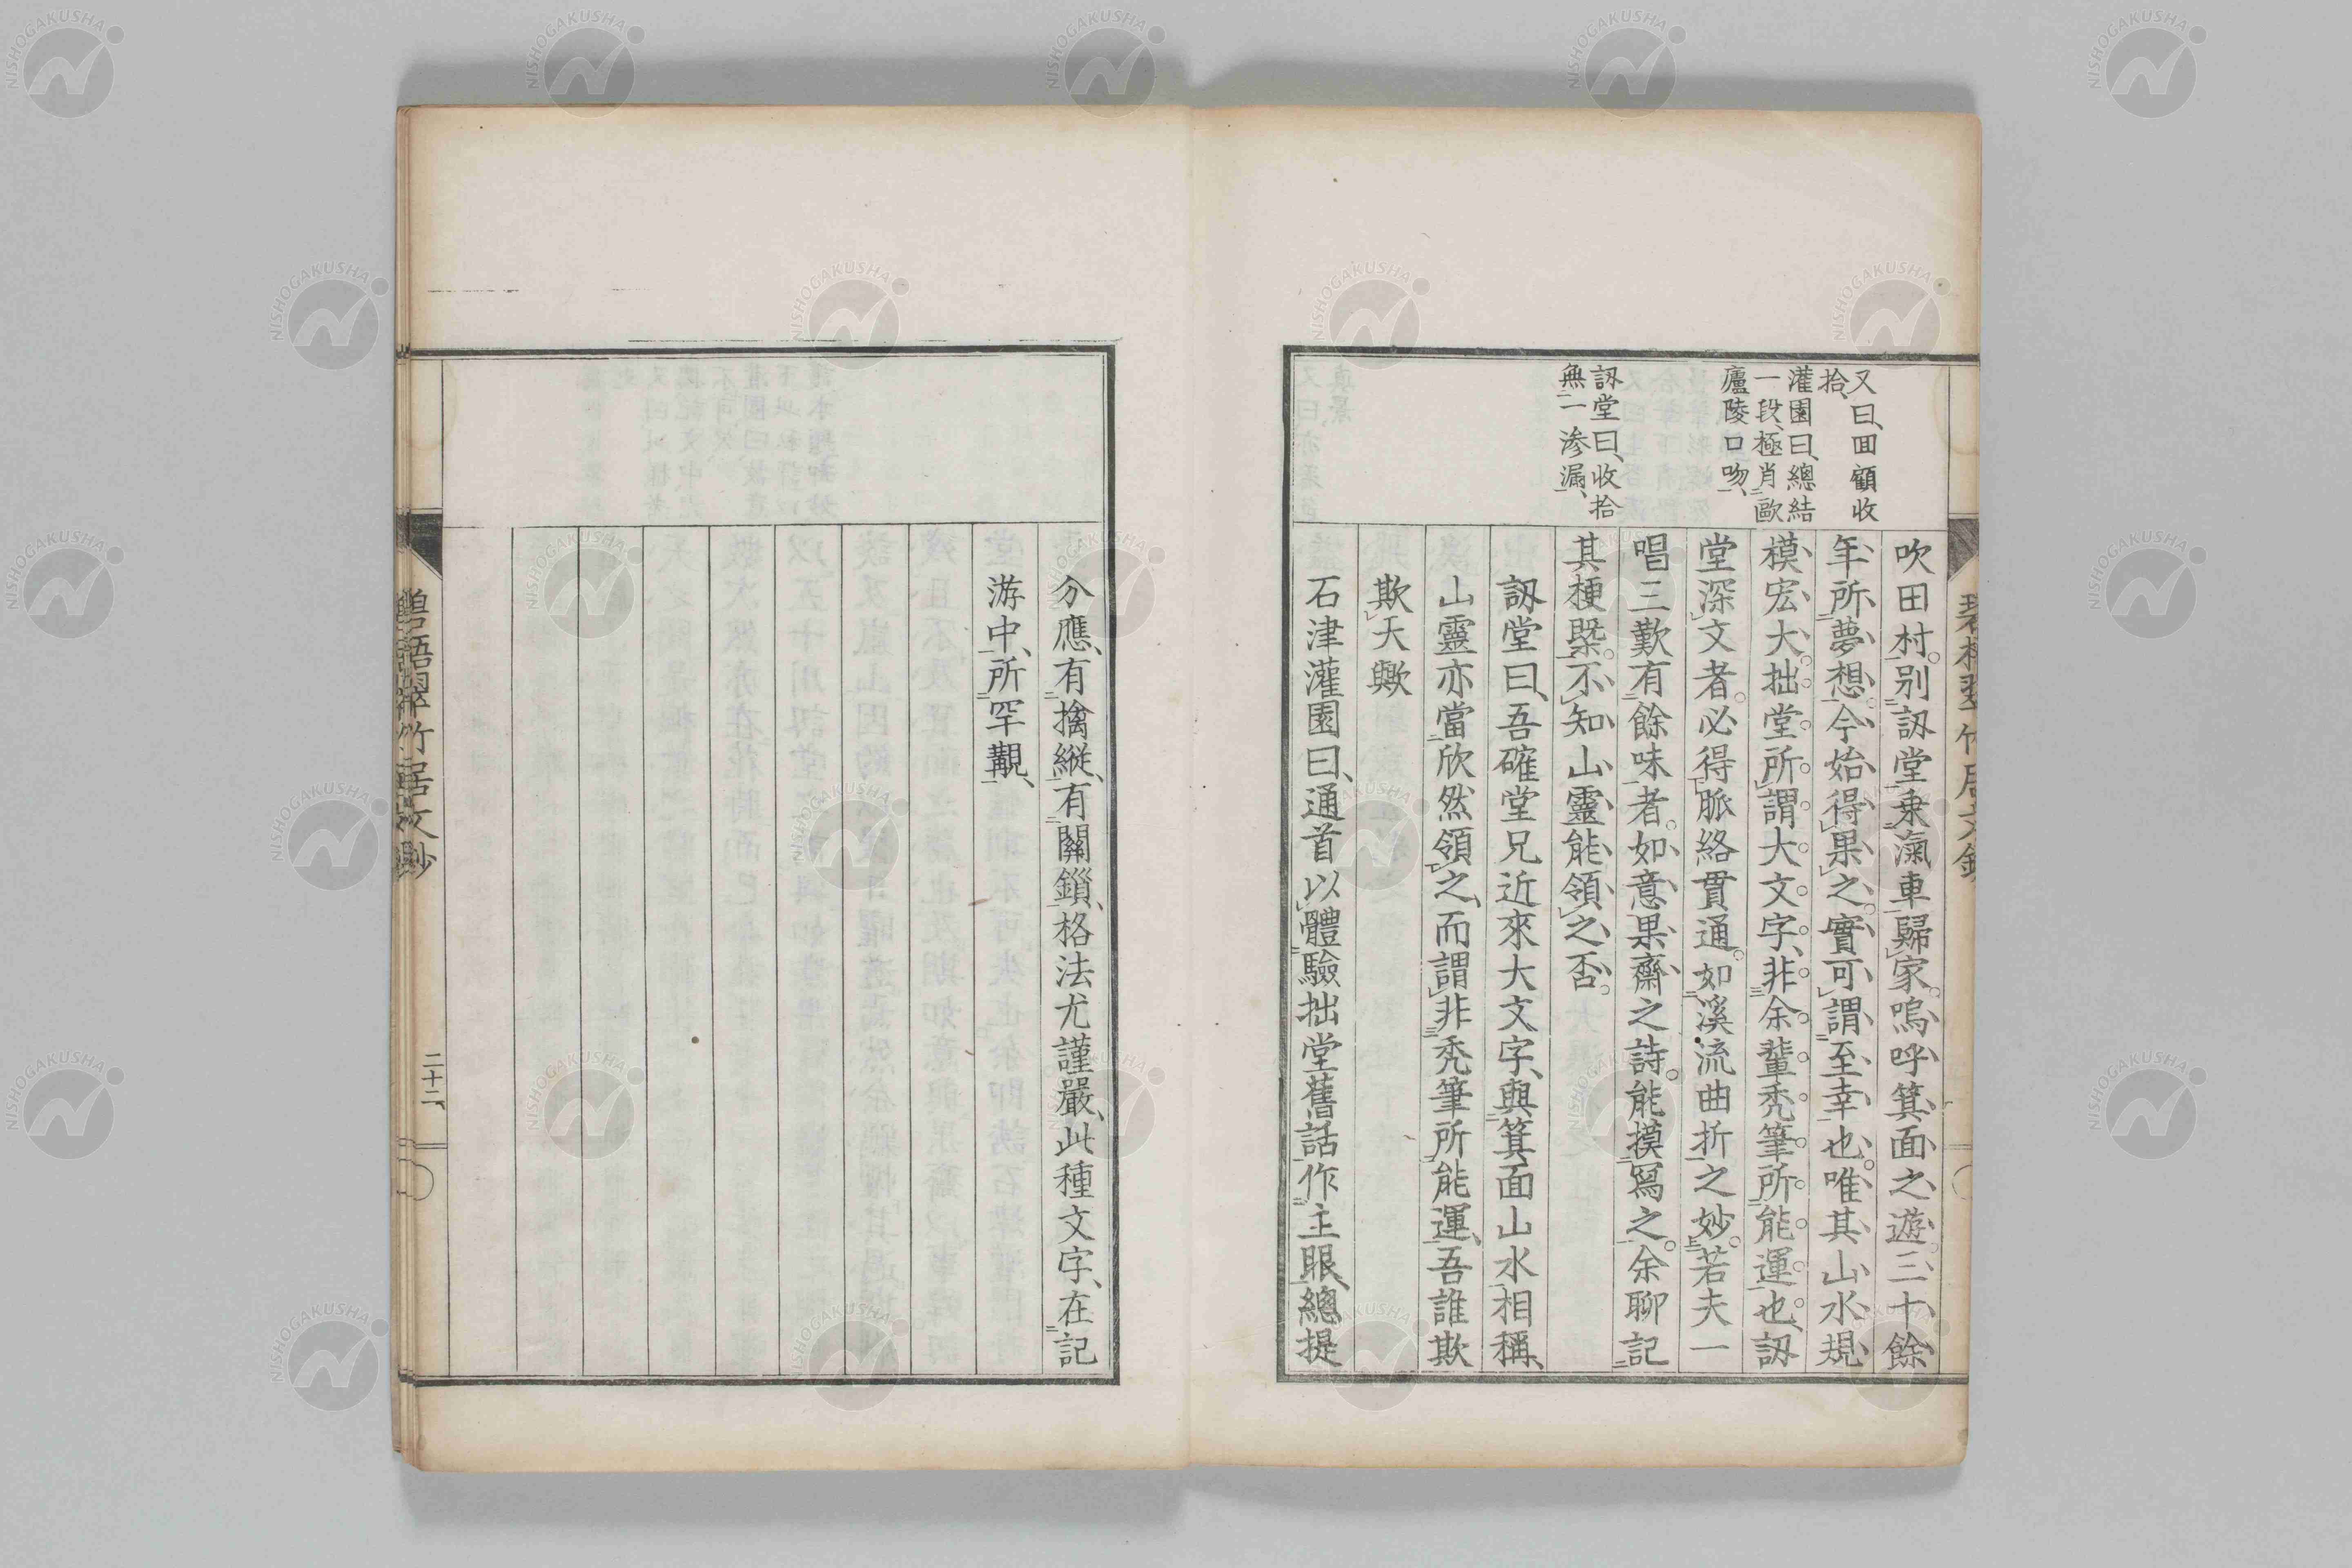 又曰、回顧收
拾、
灌園曰、總結
一段、極肖歐
廬陵口吻、
訒堂曰、收拾
無一滲漏、
吹田村。別訒堂乘滊車歸家。嗚呼箕面之遊。三十餘
年所夢想。今始得果之。實可謂至幸也。唯其山水規
模宏大。拙堂所謂大文字、非余輩禿筆所能運也。訒
堂深文者。必得脈絡貫通。如溪流曲折之妙。若夫一
唱三歎有餘味者。如意果齋之詩。能摸寫之。余聊記
其梗槩。不知山靈能領之否。
訒堂曰、吾確堂兄近來大文字、與箕面山水相稱、
山靈亦當欣然領之、而謂非禿筆所能運、吾誰欺
欺天歟
石津灌園曰、通首以體驗拙堂舊話作主眼、總提
分應、有擒縱、有關鎖、格法尤謹嚴、此種文字、在記
游中、所罕觀、
碧梧翠竹居文鈔
二十二
NISHOGAKUSHA